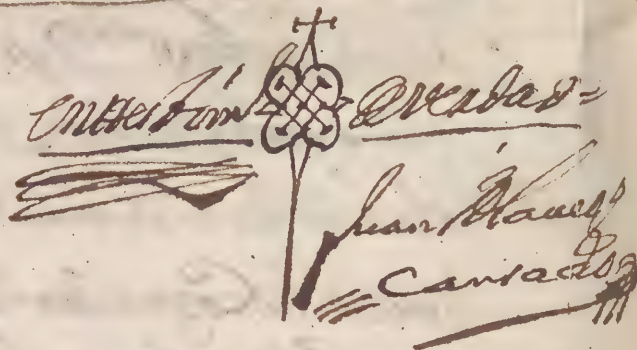 en testimo de verdad=
Juan
Cansado